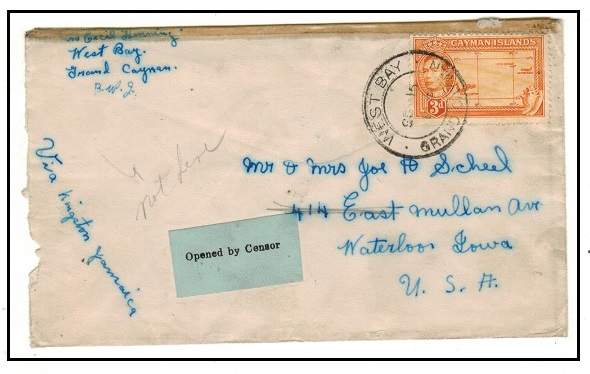 Cecil
West Bay.
Grand Cayman.
B.W.I.
CAYMAN ISLANDS
3d
WEST BAY
GRAND
Via Kingston Jamaica
not here
Mr & Mrs Joe H Scheel
414 East Mullan Ave
Waterloo Iowa
U. S. A.
Opened by Censor